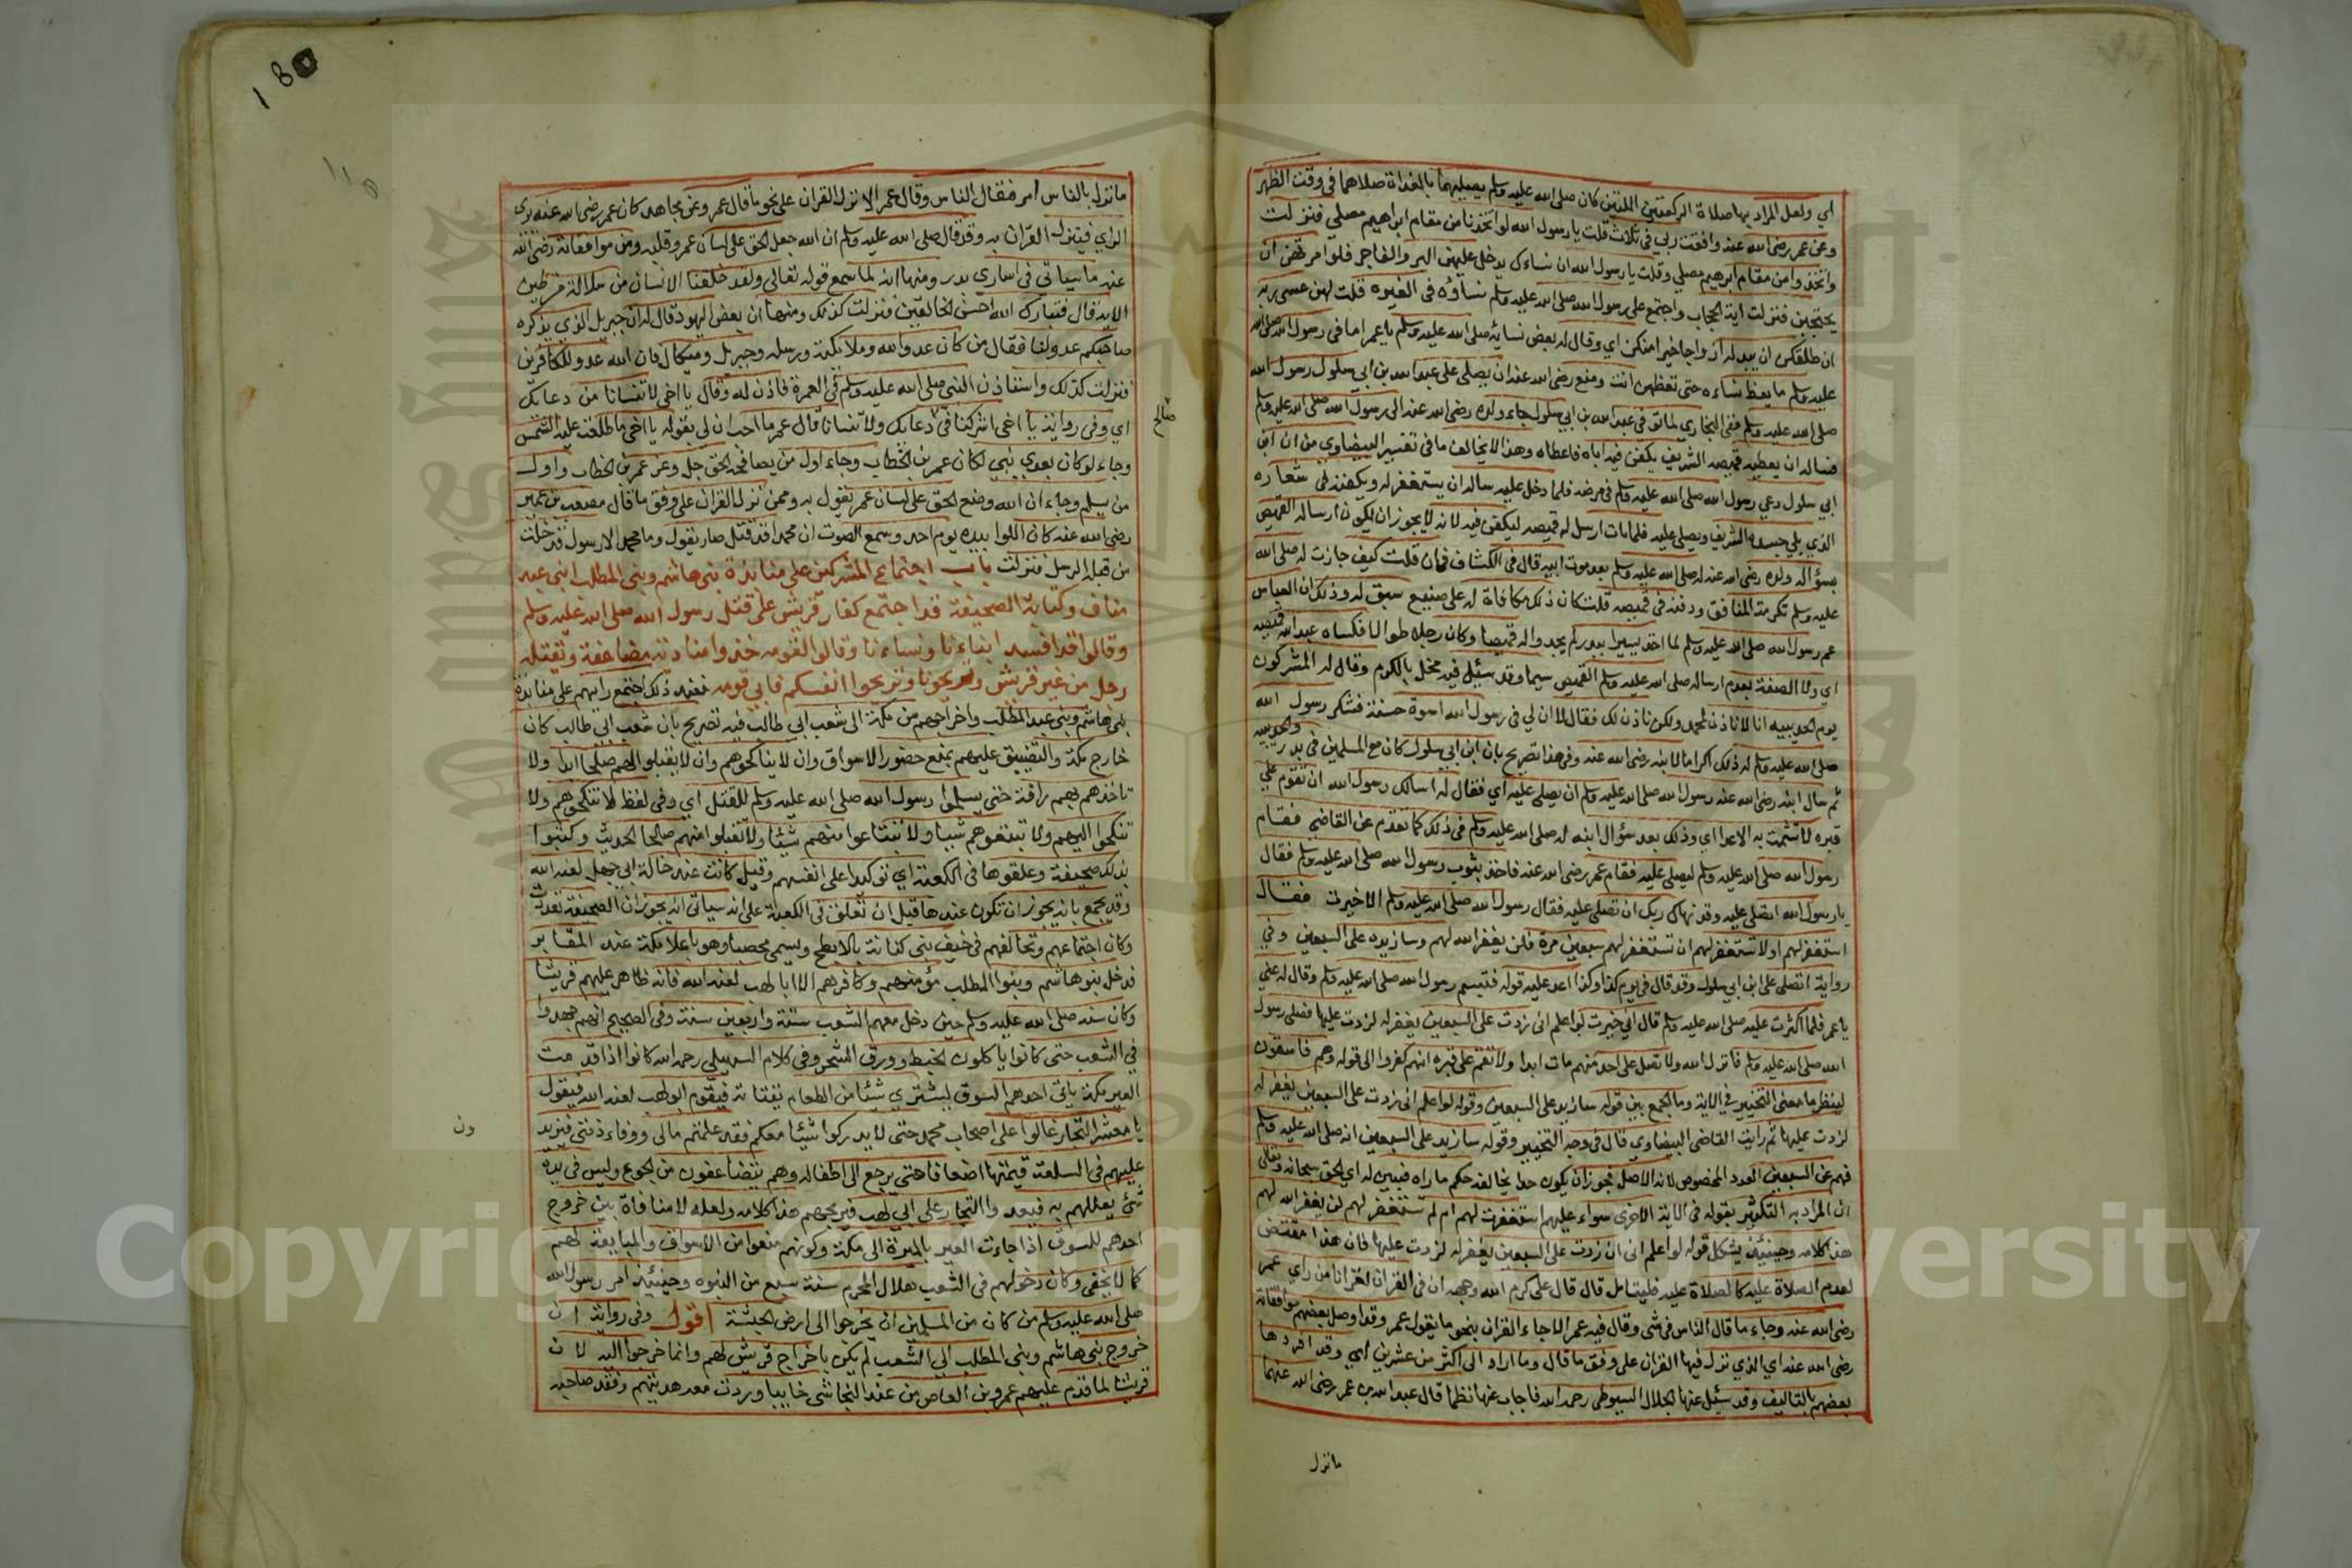 اي ولعل المراد بها صلاة الركعتين اللتين كان صلى الله عليه وسلم يصليهما بالغداة صلاهما في وقت الظهر
وعن عمر رضى الله عنه وافقت ربي في ثلاث قلت يا رسول الله لو اتخذنا من مقام ابراهيم مصلي فنزلت
واتخذوا من مقام ابرهيم مصلي وقلت يا رسول الله ان نساءك يدخل عليهن البر والفاجر فلو امرتهن ان
يحتجبن فنزلت اية الحجاب واجتمع على رسول الله صلى الله عليه وسلم نساؤه في الغيره قلت لهن عسى ربه
ان طلقكن ان يبدله ازواجا خيرا منكن اي وقال له بعض نسايه صلى الله عليه وسلم يا عمر اما في رسول الله صلى الله
عليه وسلم ما يعظ نساءه حتى تعظهن انت ومنع رضى الله عنه ان يصلى على عبد الله بن ابي سلول رسول الله
صلى الله عليه وسلم ففى البخاري لما توفى عبد الله بن ابي سلول جاء ولده رضى الله عنه الى رسول الله صلى الله عليه وسلم
فساله ان يعطيه قميصه الشريف يكفن فيه اباه فاعطاه وهذا لا يخالف ما في تفسير البيضاوي من ان ابن
ابي سلول دعي رسول الله صلى الله عليه وسلم في مرضه فلما دخل عليه ساله ان يستغفر له ويكفنه في شعاره
الذي يلي جسده الشريف ويصلى عليه فلما مات ارسل له قميصه ليكفن فيه لانه لا يجوز ان يكون ارساله القميص
بسؤال ولده رضى الله عنه له صلى الله عليه وسلم بعد موت ابيه قال في الكشاف فان قلت كيف جازت له صلى الله
عليه وسلم تكرمة المنافق ودفنه في قميصه قلت كان ذلك مكافاة له على صنيع سبق له وذلك ان العباس
عم رسول الله صلى الله عليه وسلم لما اخذ يسيرا ببدر لم يجدوا له قميصا وكان رجلا طوالا فكساه عبد الله قميصه
اي ولا الصفة بعدم ارساله صلى الله عليه وسلم القميص سيما وقد سيئل فيه مخل بالكرم وقال له المشركون
يوم الحديبيه انا لا ناذن لمحمد ولكن ناذن لك فقال لا ان لي في رسول الله اسوة حسنة فشكر رسول الله
صلى الله عليه وسلم له ذلك اكراما لابنه رضى الله عنه وفي هذا تصريح بان ابن ابي سلول كان مع المسلمين في بدر والحديبيه
ثم سال ابنه رضى الله عنه رسول الله صلى الله عليه وسلم ان يصلى عليه اي فقال له اسالك رسول الله ان تقوم علي
قبره لا تشمت به الاعدا اي وذلك بعد سؤال ابنه له صلى الله عليه وسلم في ذلك كما تقدم عن القاضي فقام
رسول الله صلى الله عليه وسلم ليصلى عليه فقام عمر رضى الله عنه فاخذ بثوب رسول الله صلى الله عليه وسلم فقال
يا رسول الله اتصلى عليه وقد نهاك ربك ان تصلى عليه فقال رسول الله صلى الله عليه وسلم الا خيرت فقال
استغفر لهم اولا تستغفر لهم ان تستغفر لهم سبعين مرة فلن يغفر الله لهم وسازيده على السبعين وفي
رواية اتصلى على ابن ابي سلول وقد قال في يوم كذا وكذا اعد عليه قوله فتبسم رسول الله صلى الله عليه وسلم وقال له عني
يا عمر فلما اكثرت عليه صلى الله عليه وسلم قال اني خيرت لو اعلم انى زدت على السبعين يغفر له لزدت عليها فصلى رسول
الله صلى الله عليه وسلم فانزل الله ولا تصل على احد منهم مات ابدا ولا تقم على قبره انهم كفروا الى قوله وهم فاسقون
لينظر ما معنى التخيير في الاية وما الجمع بين قوله سازيد على السبعين وقوله لو اعلم انى زدت على السبعين يغفر له
لزدت عليها ثم رايت القاضى البيضاوي قال في وجه التخيير وقوله سازيد على السبعين انه صلى الله عليه وسلم
فهم من السبعين العدد المخصوص لانه الاصل فجوز ان يكون حدا يخالفه حكم ما راه فبين له اي الحق سبحانه وتعالى
ان المراد به التكثير بقوله في الاية الاخرى سواء عليهم استغفرت لهم ام لم تستغفر لهم لن يغفر الله لهم
هذا كلامه وحينئذ يشكل قوله لو اعلم انى ان زدت على السبعين يغفر له لزدت عليها فان هذا مقتض
لعدم الصلاة عليه كالصلاة عليه فليتامل قال قال على كرم الله وجهه ان في القران لقرانا من راي عمر
رضى الله عنه وجاء ما قال الناس في شى وقال فيه عمر الا جاء القران بنحو ما يقول عمر وقد اوصل بعضهم موافقاته
رضى الله عنه اي الذي نزل فيها القران على وفق ما قال وما اراد الى اكثر من عشرين اي وقد افردها
بعضهم بالتاليف وقد سيئل عنها الجلال السيوطى رحمه الله فاجاب عنها نظما قال عبد الله بن عمر رضى الله عنهما
ما نزل
ما نزل بالناس امر فقال الناس وقال عمر الا نزل القران على نحو ما قال عمر وعن مجاهد كان عمر رضى الله عنه يرى
الراي فينزل القران به وقد قال صلى الله عليه وسلم ان الله جعل الحق على لسان عمر وقلبه ومن موافقاته رضى الله
عنه ما سياتي في اساري بدر ومنها انه لما سمع قوله تعالى ولقد خلقنا الانسان من سلالة من طين
الاية قال فتبارك الله احسن الخالقين فنزلت كذلك ومنها ان بعض اليهود قال له ان جبريل الذي يذكره
صاحبكم عدو لنا فقال من كان عدوا لله وملايكته ورسله وجبريل وميكال فان الله عدو للكافرين
فنزلت كذلك واستاذن النبى صلى الله عليه وسلم في العمرة فاذن له وقال يا اخى لا تنسانا من دعائك
اي وفى رواية يا اخى اشركنا في دعائك ولا تنسانا قال عمر ما احب ان لى بقوله يا اخى ما طلعت عليه الشمس
صالح
وجاء لو كان بعدي نبي لكان عمر بن الخطاب وجاء اول من يصافحه الحق جل وعز عمر بن الخطاب واول
من يسلم وجاء ان الله وضع الحق على لسان عمر يقول به وممن نزل القران على وفق ما قال مصعب بن عمير
رضى الله عنه كان اللوا بيده يوم احد وسمع الصوت ان محمدا قد قتل صار يقول وما محمد الا رسول قد خلت
من قبله الرسل فنزلت باب اجتماع المشركين على منابذة بنى هاشم وبنى المطلب ابنى عبد
مناف وكتابة الصحيفة قد اجتمع كفار قريش على قتل رسول الله صلى الله عليه وسلم
وقالوا قد افسد ابناءنا ونساءنا وقالوا لقومه خذوا منا دية مضاعفة وتقتله
رجل من غير قريش وتريحونا وتريحوا انفسكم فابى قومه فعند ذلك اجتمع رايهم على منابذة
بنى هاشم وبنى عبد المطلب واخراجهم من مكة الى شعب ابي طالب فيه تصريح بان شعب ابي طالب كان
خارج مكة والتضييق عليهم بمنع حضور الاسواق وان لا يناكحوهم وان لا يقبلوا لهم صلحا ابدا ولا
تاخذهم بهم رافة حتى يسلموا رسول الله صلى الله عليه وسلم للقتل اي وفى لفظ لا تنكحوهم ولا
تنكحوا اليهم ولا تبيعوهم شيا ولا تبتاعوا منهم شيئا ولا تقبلوا منهم صلحا الحديث وكتبوا
بذلك صحيفة وعلقوها في الكعبة اي توكيدا على انفسهم وقيل كانت عند خالة ابي جهل لعنه الله
وقد يجمع بانه يجوز ان تكون عندها قبل ان تعلق في الكعبة على انه سياتى انه يجوز ان الصحيفة تعددت
وكان اجتماعهم وتحالفهم في خيف بنى كنانة بالابطح ويسمى محصبا وهو باعلا مكة عند المقابر
فدخل بنو هاشم وبنوا المطلب مؤمنهم وكافرهم الا ابا لهب لعنه الله فانه ظاهر عليهم قريشا
وكان سنه صلى الله عليه وسلم حين دخل معهم الشعب ستة واربعين سنة وفى الصحيح انهم جهدوا
في الشعب حتى كانوا ياكلون الخبط وورق الشجر وفى كلام السهيلي رحمه الله كانوا اذا قدمت
العير مكة ياتى احدهم السوق ليشتري شيئا من الطعام يقتاته فيقوم ابو لهب لعنه الله فيقول
يا معشر التجار غالوا على اصحاب محمد حتى لا يدركوا شيئا معكم فقد علمتم مالى ووفاء ذمتى فيزيد
ون
عليهم في السلعة قيمتها اضعافا حتى يرجع الى اطفاله وهم يتضاغون من الجوع وليس في يده
شئ يعللهم به فيغدوا التجار على ابي لهب فيربحهم هذا كلامه ولعله لا منافاة بين خروج
احدهم للسوق اذا جاءت العير بالميرة الى مكة وكونهم منعوا من الاسواق والمبايعة لهم
كما لا يخفى وكان دخولهم في الشعب هلال المحرم سنة سبع من النبوه وحينئذ امر رسول الله
صلى الله عليه وسلم من كان من المسلمين ان يخرجوا الى ارض الحبشة اقول وفى رواية ان
خروج بنى هاشم وبنى المطلب الى الشعب لم يكن باخراج قريش لهم وانما خرجوا اليه لان
قريشا لما قدم عليهم عمرو بن العاص من عند النجاشى خايبا وردت معه هديتهم وفقد صاحبه
180
Copyright © King Saud University